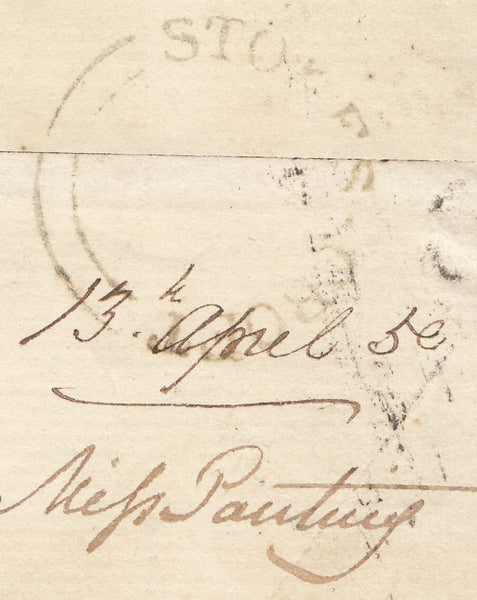 STO
13.h April 50
Miss Panting